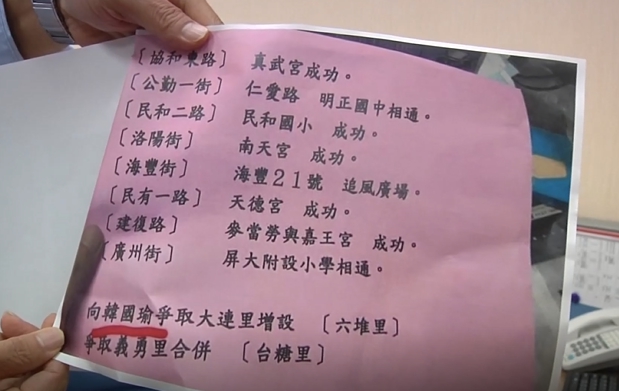 〔協和東路〕 真武宮成功。
〔公勤一街〕 仁愛路 明正國中相通。
〔民和二路〕 民和國小 成功。
〔洛陽街〕 南天宮 成功。
〔海豐街〕 海豐21號 追風廣場。
〔民有一路〕 天德宮 成功。
〔建復路〕 麥當勞與嘉王宮 成功。
〔廣州街〕 屏大附設小學相通。
向韓國瑜爭取大連里增設 〔六堆里〕
爭取義勇里合併 〔台糖里〕